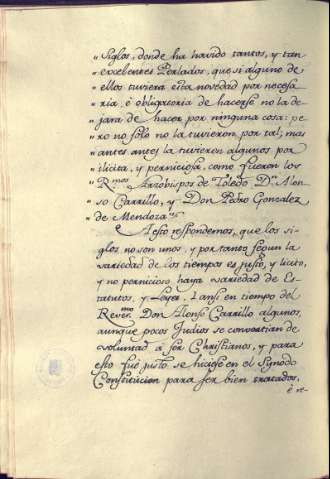 "Siglos, donde ha havido tantos, y tan
" excelentes Perlados, que si alguno de
" ellos tuviera esta novedad por necesa
" ria, é obligatoria de hacerse no la de
" jara de hacer por ninguna cosa: pe
" ro no sólo no la tuvieron por tal; mas
" antes antes la tuvieron algunos por
" ilicita, y perniciosa, como fueron los
" R.mos Arzobispos de Toledo D.n Alon
" so Carrillo, y Don Pedro Gonzalez
" de Mendoza."
A esto respondemos, que los si-
glos no son unos, y por tanto segun la
variedad de los tiempos es justo, y licito,
y no pernicioso haya variedad de Es-
tatutos, y Leyes. I ansi en tiempo del
Rever.mo Don Alonso Carrillo algunos,
aunque pocos Judios se convertian de
voluntad á ser Christianos, y para
esto fue justo se hiciese en el Synodo
Constitucion para ser bien tratados,
é re-